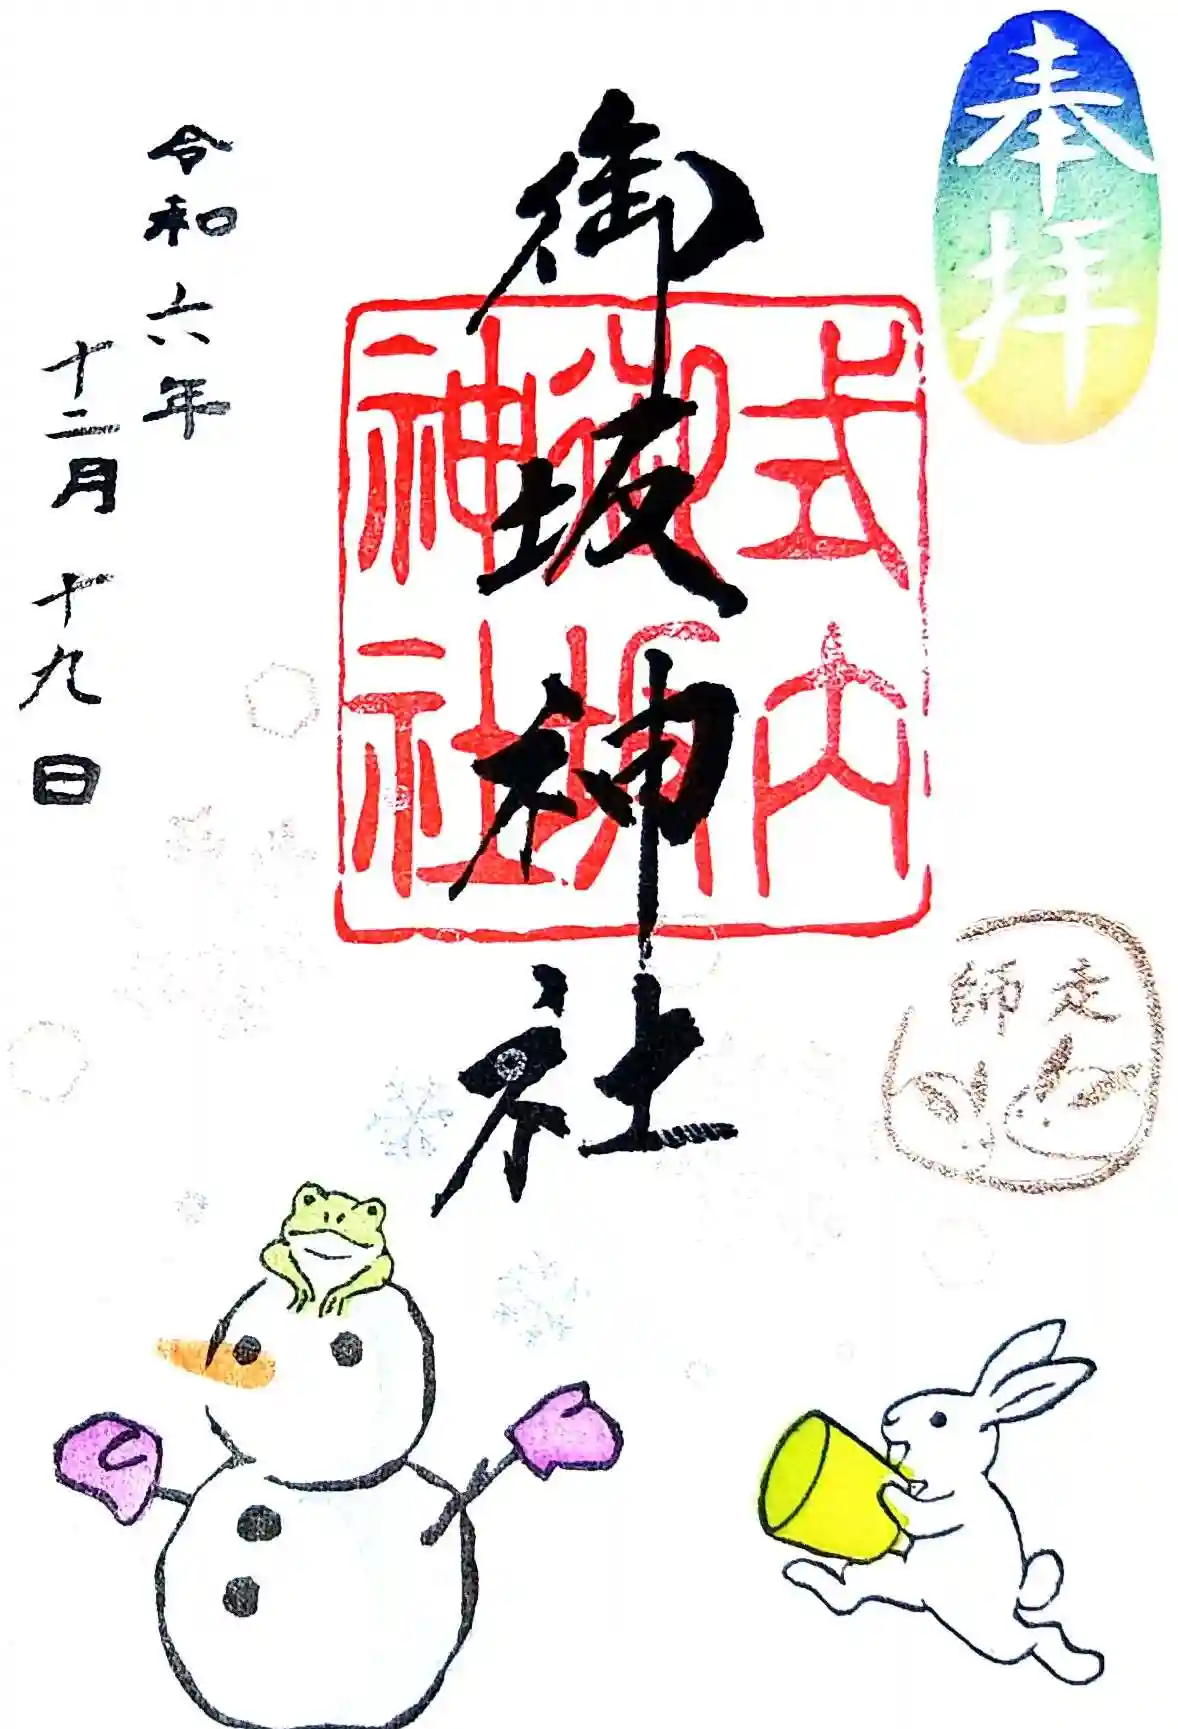 奉拝
式内
御坂
神社
御坂神社
令和六年
十二月十九日
師走